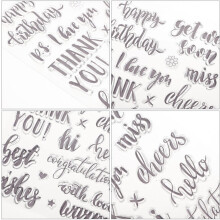 happy
birthday
p.s. I love you
THANK
YOU!
happy
birthday
get well
soon
I love you
miss
ANK
x
cheers
YOU!
x
hi
miss
congratulations
best
wishes
with love
x
cheers
hello